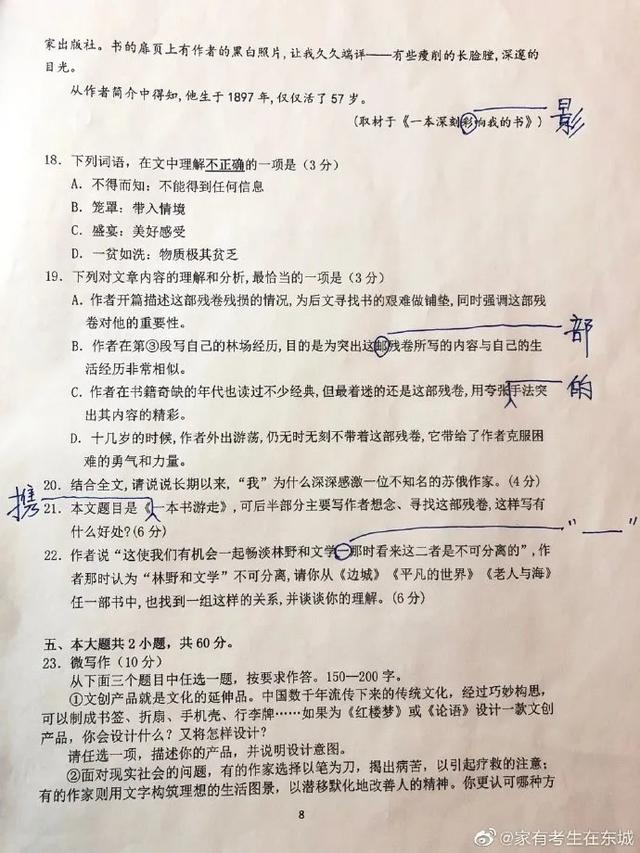 家出版社。书的扉页上有作者的黑白照片,让我久久端详——有些瘦削的长脸膛,深邃的
目光。
从作者简介中得知,他生于1897年,仅仅活了57岁。
(取材于《一本深刻彩响我的书》)
影
18. 下列词语,在文中理解不正确的一项是(3分)
A. 不得而知:不能得到任何信息
B. 笼罩:带入情境
C. 盛宴:美好感受
D. 一贫如洗:物质极其贫乏
19. 下列对文章内容的理解和分析,最恰当的一项是(3分)
A. 作者开篇描述这部残卷残损的情况,为后文寻找书的艰难做铺垫,同时强调这部残
卷对他的重要性。
部
B. 作者在第③段写自己的林场经历,目的是为突出这邮残卷所写的内容与自己的生
活经历非常相似。
C. 作者在书籍奇缺的年代也读过不少经典,但最着迷的还是这部残卷,用夸张手法突
的
出其内容的精彩。
D. 十几岁的时候,作者外出游荡,仍无时无刻不带着这部残卷,它带给了作者克服困
难的勇气和力量。
20. 结合全文,请说说长期以来,“我”为什么深深感激一位不知名的苏俄作家。(4分)
携
21. 本文题目是《一本书游走》,可后半部分主要写作者想念、寻找这部残卷,这样写有
什么好处?(6分)
“——”
22. 作者说“这使我们有机会一起畅谈林野和文学一那时看来这二者是不可分离的”,作
者那时认为“林野和文学”不可分离,请你从《边城》《平凡的世界》《老人与海》
任一部书中,也找到一组这样的关系,并谈谈你的理解。(6分)
五、本大题共2小题,共60分。
23. 微写作(10分)
从下面三个题目中任选一题,按要求作答。150—200字。
①文创产品就是文化的延伸品。中国数千年流传下来的传统文化,经过巧妙构思,
可以制成书签、折扇、手机壳、行李牌……如果为《红楼梦》或《论语》设计一款文创
产品,你会设计什么?又将怎样设计?
请任选一项,描述你的产品,并说明设计意图。
②面对现实社会的问题,有的作家选择以笔为刀,揭出病苦,以引起疗救的注意;
有的作家则用文字构筑理想的生活图景,以潜移默化地改善人的精神。你更认可哪种方
8
@家有考生在东城